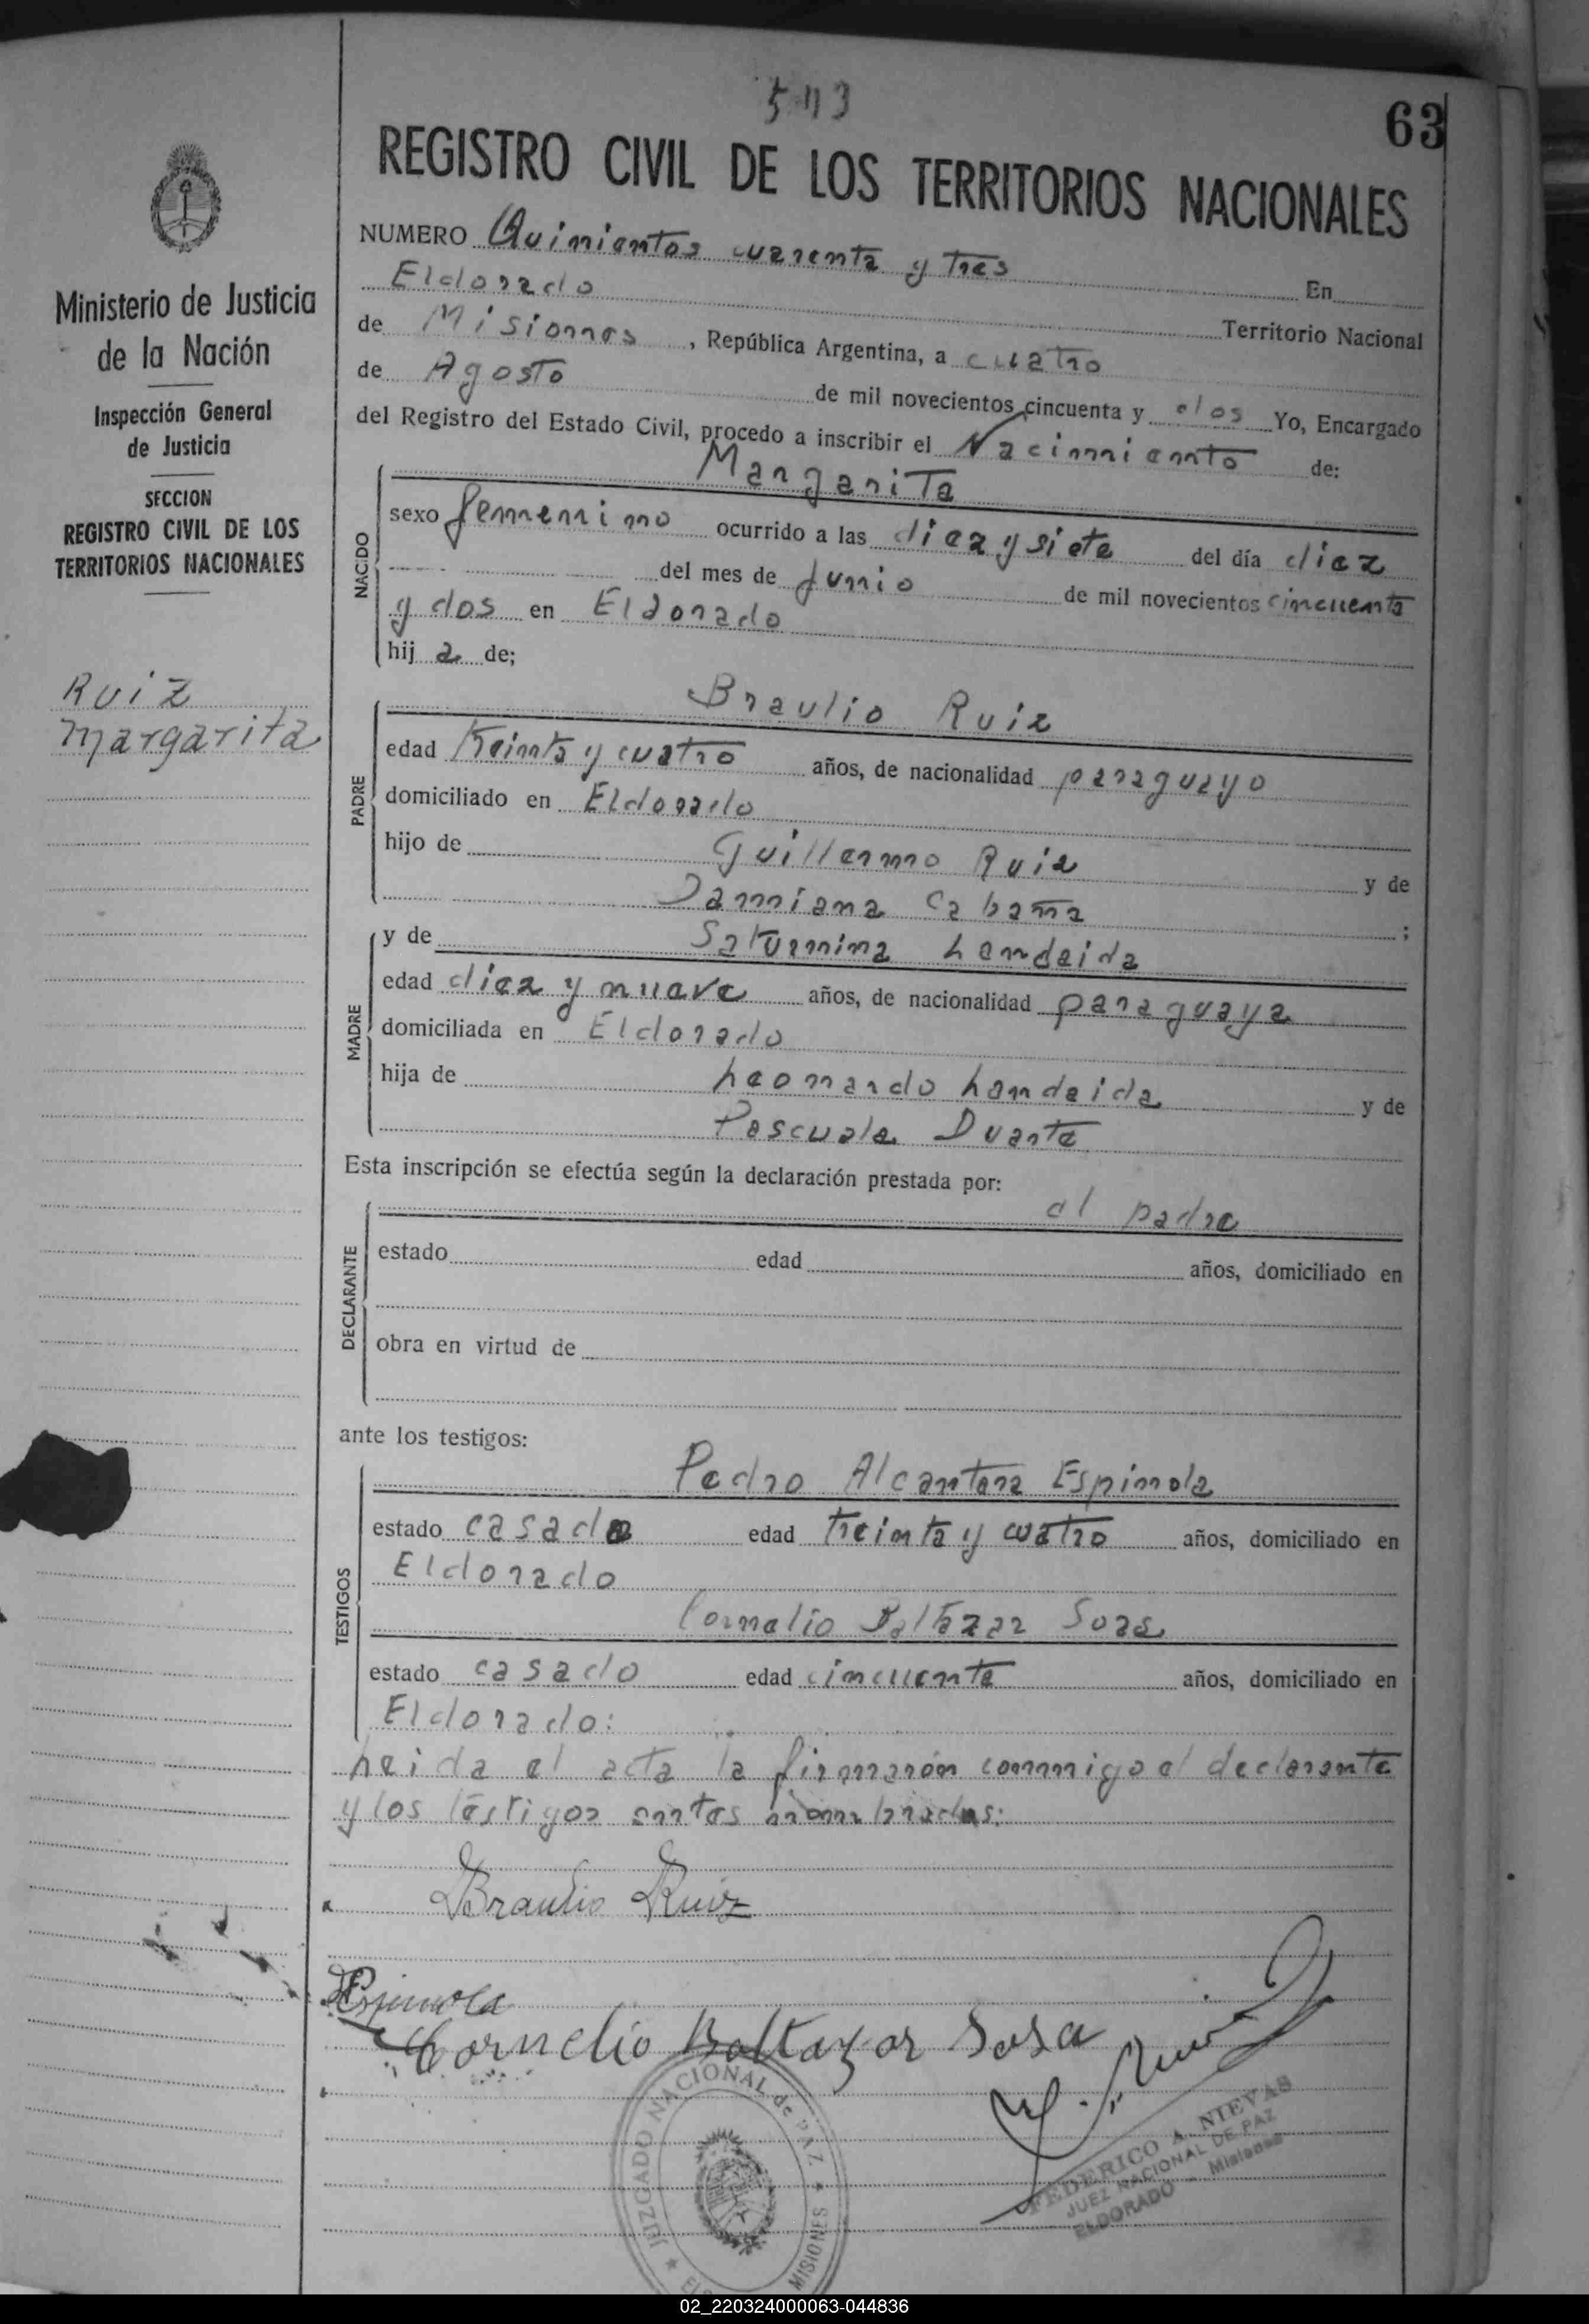 543
63
REGISTRO CIVIL DE LOS TERRITORIOS NACIONALES
Ministerio de Justicia
de la Nación
Inspección General
de Justicia
SECCION
REGISTRO CIVIL DE LOS
TERRITORIOS NACIONALES
Ruiz
Margarita
NUMERO Quinientos cuarenta y tres En
Eldorado Territorio Nacional
de Misiones, República Argentina, a cuatro
de Agosto de mil novecientos cincuenta y dos Yo, Encargado
del Registro del Estado Civil, procedo a inscribir el Nacimiento de:
NACIDO
Margarita
sexo femenino ocurrido a las diez y siete del día diez
del mes de Junio de mil novecientos cincuenta
y dos en Eldorado
hij a de;
PADRE
Braulio Ruiz
edad treinta y cuatro años, de nacionalidad paraguayo
domiciliado en Eldorado
hijo de Guillermo Ruiz y de
Damiana Cabaña ;
MADRE
y de Saturnina Landaida
edad diez y nueve años, de nacionalidad paraguaya
domiciliada en Eldorado
hija de Leonardo Landaida y de
Pascuala Duarte
Esta inscripción se efectúa según la declaración prestada por:
DECLARANTE
el padre
estado edad años, domiciliado en
obra en virtud de
ante los testigos:
TESTIGOS
Pedro Alcantara Espinola
estado casado edad treinta y cuatro años, domiciliado en
Eldorado
Cornelio Baltazar Sosa
estado casado edad cincuenta años, domiciliado en
Eldorado:
Leida el acta la firmarón conmigo el declarante
y los testigos antes nombrados:
Braulio Ruiz
Espinola
Cornelio Baltazar Sosa
JUZGADO NACIONAL de PAZ
MISIONES
FEDERICO A. NIEVAS
JUEZ NACIONAL DE PAZ
ELDORADO - Misiones
02_220324000063-044836